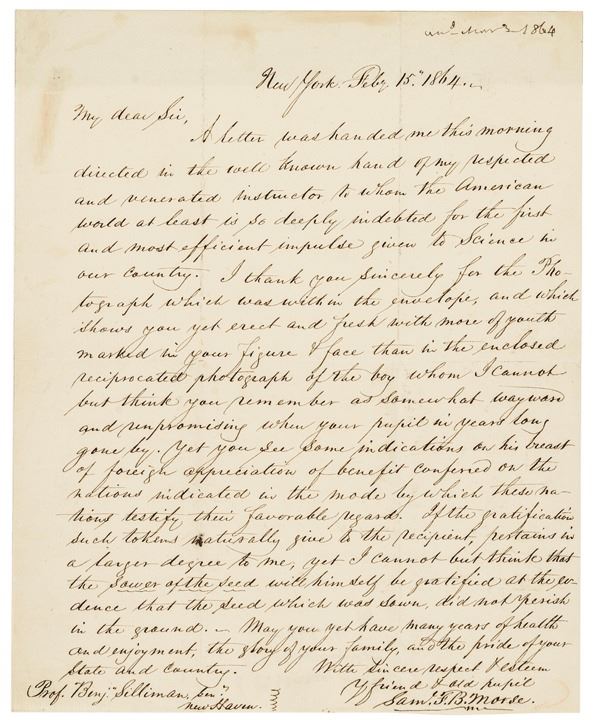 ansd Mar 3 1864
New York Feby. 15." 1864.
My dear Sir,
A letter was handed me this morning
directed in the well known hand of my respected
and venerated instructor to whom the American
world at least is so deeply indebted for the first
and most efficient impulse given to Science in
our Country. I thank you sincerely for the Pho-
tograph which was within the envelope, and which
shows you yet erect and fresh with more of youth
marked in your figure & face than in the enclosed
reciprocated photograph of the boy whom I cannot
but think you remember as somewhat wayward
and unpromising when your pupil in years long
gone by. Yet you see some indications on his breast
of foreign appreciation of benefit conferred on the
nations indicated in the mode by which these na-
tions testify their favorable regard. If the gratification
such tokens naturally give to the recipient, pertains in
a larger degree to me, yet I cannot but think that
the sower of the seed will himself be gratified at the evi-
dence that the seed which was sown, did not perish
in the ground. — May you yet have many years of health
and enjoyment, the glory of your family, and the pride of your
State and Country. With sincere respect & esteem
Yr friend & old pupil
Prof. Benj." Silliman, Senr.
New Haven.
Saml. F. B. Morse.